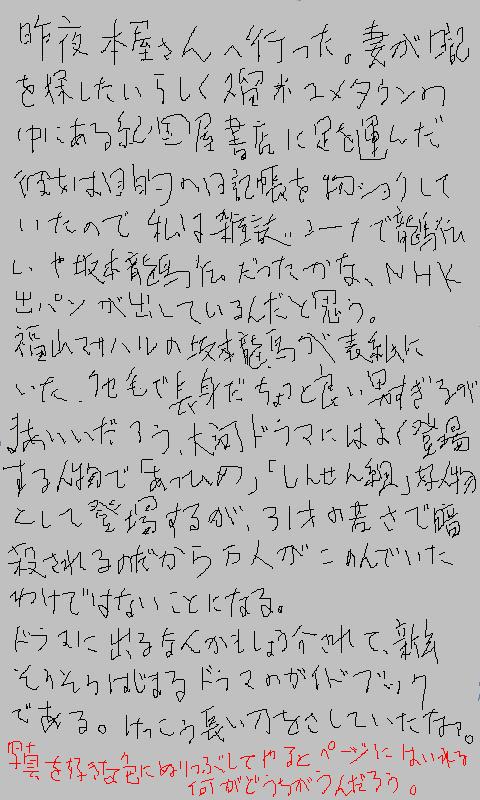 昨夜本屋さんへ行った。妻が日記
を探したいらしく 久留米ユメタウンの
中にある紀国屋書店に足を運んだ
彼女は目的の日記帳を物ショクして
いたので 私は雑誌コーナで龍馬伝
いや坂本龍馬伝。だったかな、NHK
出パンが出しているんだと思う。
福山マサハルの坂本龍馬が表紙に
いた、クセ毛で長身だちょっと良い男すぎるが
まあいいだろう、大河ドラマにはよく登場
する人物で「あつひめ」,「しんせん組」な人物
として登場するが、31才の若さで暗
殺されるのだから万人がこのんでいた
わけではないことになる。
ドラマに出るなんかもしょう介されて、新年
そうそうはじまるドラマのガイドブック
である。けっこう長い刀をさしていたなァ。
写真を好きな色にぬりつぶしてやると ページにはいれる
何がどうちがうんだろう。